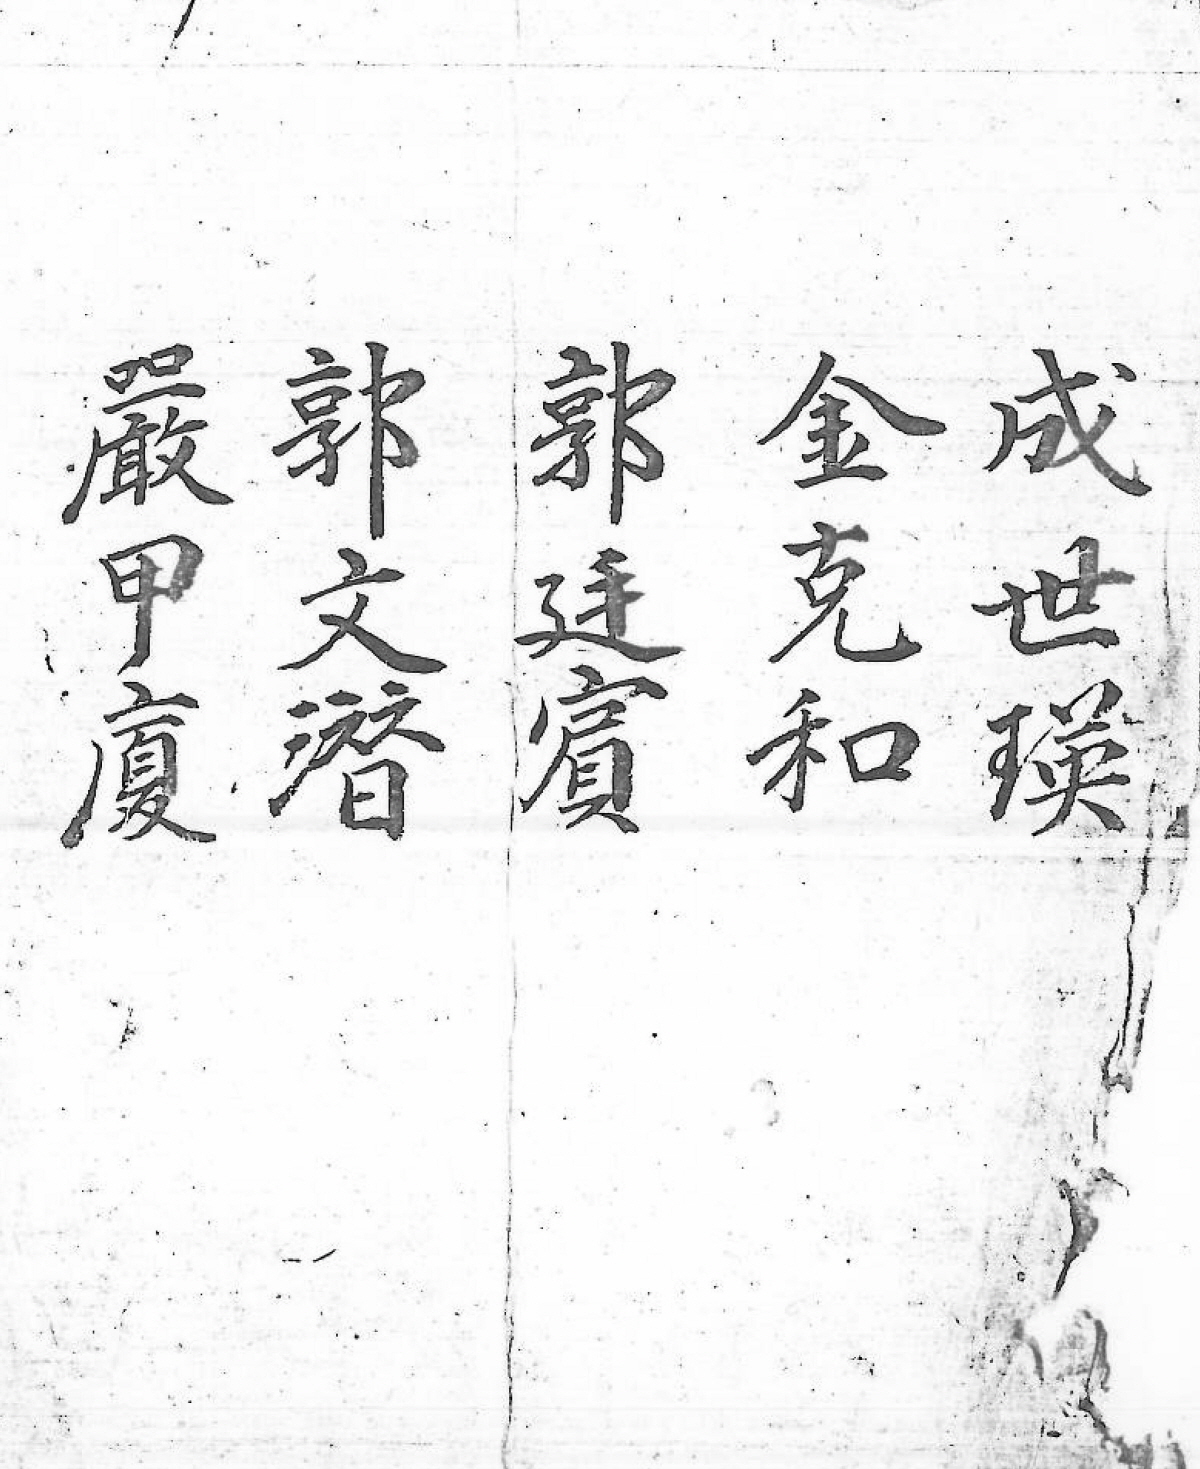 成世瑛
金克和
郭廷賓
郭文潛
嚴甲廈